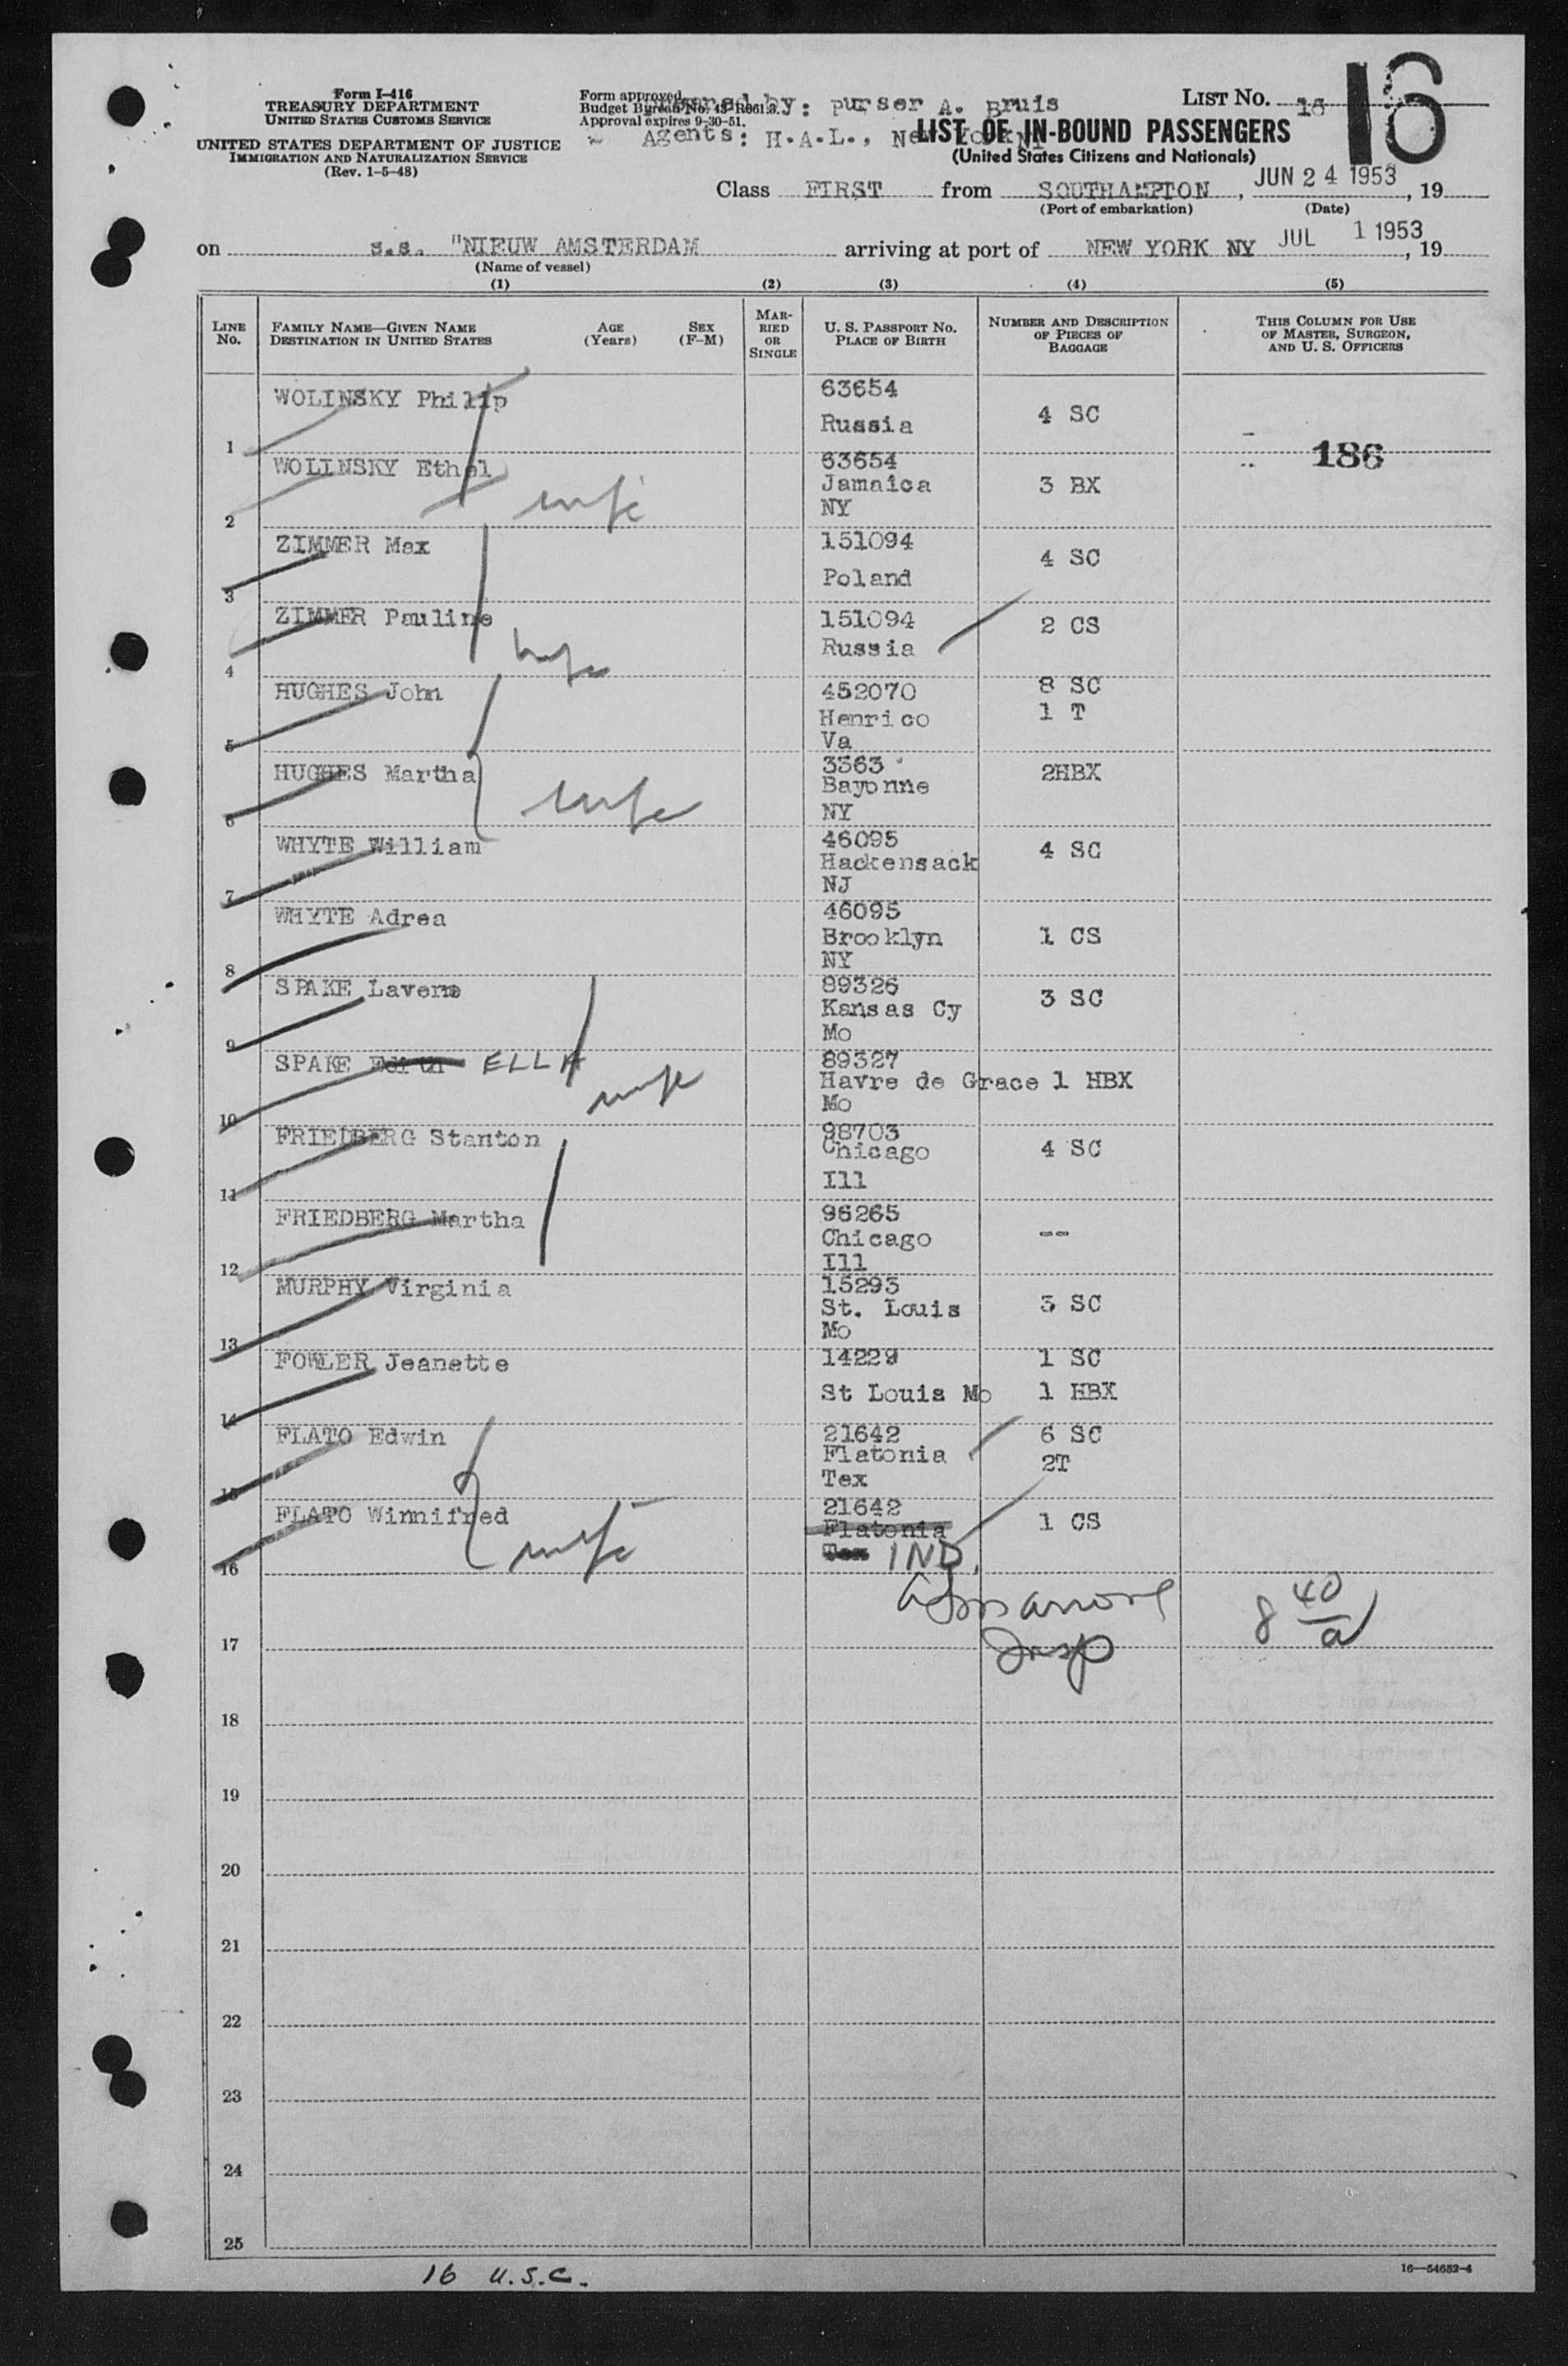 Form I-416
TREASURY DEPARTMENT
UNITED STATES CUSTOMS SERVICE
UNITED STATES DEPARTMENT OF JUSTICE
IMMIGRATION AND NATURALIZATION SERVICE
(Rev. 1-5-48)
Form approved.
Budget Bureau No. 43-R061.3.
Approval expires 9-30-51.
by: Purser A. Bruis
Agents: H.A.L., New York NY
LIST NO. 16
16
LIST OF IN-BOUND PASSENGERS
(United States Citizens and Nationals)
Class FIRST from SOUTHAMPTON, JUN 24 1953, 19
(Port of embarkation) (Date)
on s.s. "NIEUW AMSTERDAM arriving at port of NEW YORK NY JUL 1 1953, 19
(Name of vessel)
(1) (2) (3) (4) (5)
LINE NO.
FAMILY NAME—GIVEN NAME
DESTINATION IN UNITED STATES
AGE (Years)
SEX (F-M)
MARRIED OR SINGLE
U. S. PASSPORT NO.
PLACE OF BIRTH
NUMBER AND DESCRIPTION OF PIECES OF BAGGAGE
THIS COLUMN FOR USE OF MASTER, SURGEON, AND U. S. OFFICERS
1 WOLINSKY Philip 63654 Russia 4 SC
186
2 WOLINSKY Ethel wife 63654 Jamaica NY 3 BX
3 ZIMMER Max 151094 Poland 4 SC
4 ZIMMER Pauline wife 151094 Russia 2 CS
5 HUGHES John 452070 Henrico Va 8 SC 1 T
6 HUGHES Martha wife 3363 Bayonne NY 2HBX
7 WHYTE William 46095 Hackensack NJ 4 SC
8 WHYTE Adrea 46095 Brooklyn NY 1 CS
9 SPAKE Laverne 89326 Kansas Cy Mo 3 SC
10 SPAKE Edith ELLA wife 89327 Havre de Grace Mo 1 HBX
11 FRIEDBERG Stanton 98703 Chicago Ill 4 SC
12 FRIEDBERG Martha 96265 Chicago Ill --
13 MURPHY Virginia 15293 St. Louis Mo 3 SC
14 FOWLER Jeanette 14229 St Louis Mo 1 SC 1 HBX
15 FLATO Edwin 21642 Flatonia Tex 6 SC 2T
16 FLATO Winnifred wife 21642 Flatonia Tex IND. 1 CS
Insp
8 40/a
17
18
19
20
21
22
23
24
25
16 U.S.C.
16—54652-4